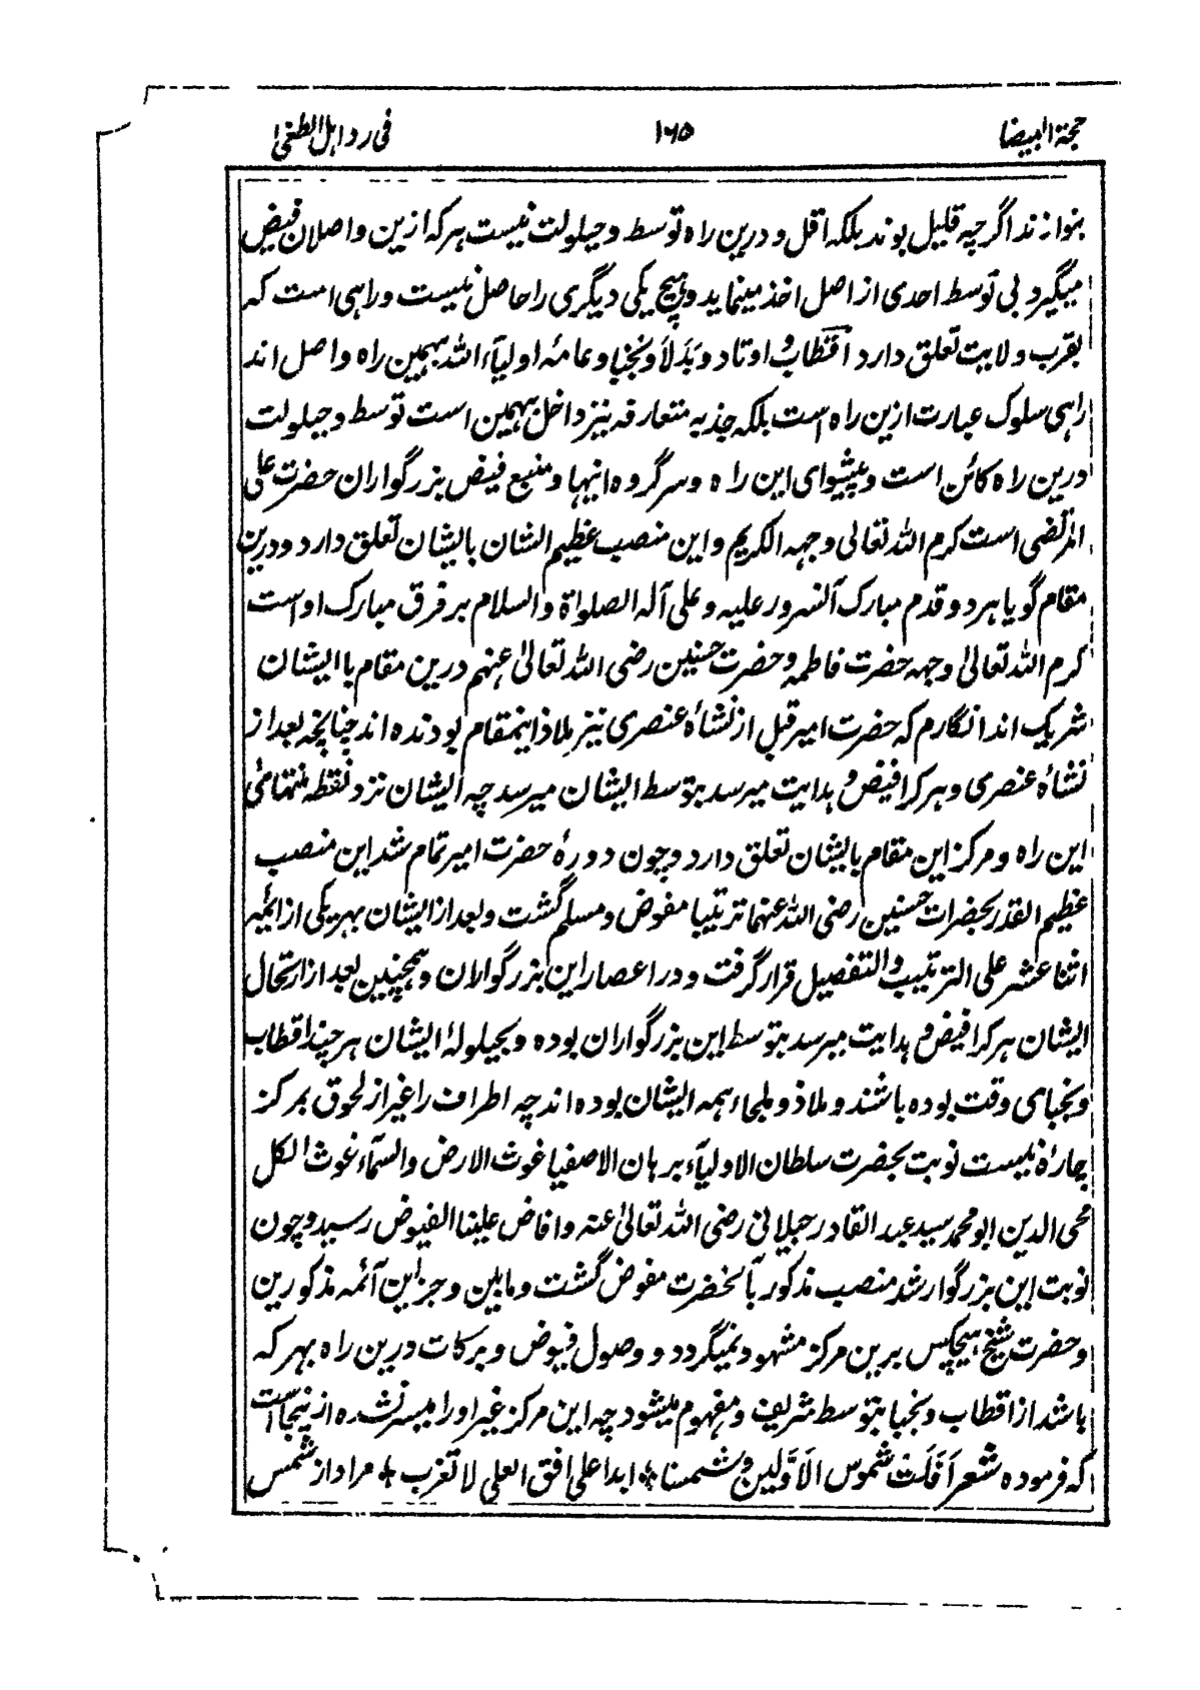 حجة البيضا ١٦٥ فی رد اہل الطغیٰ
بنوازند اگرچہ قلیل بوند بلکہ اقل و درین راہ توسط و حیلولت نیست ہر کہ ازین واصلان فیض
میگیرد بی توسط احدی از اصل اخذ مینماید و ہیچ یکی دیگری را حاصل نیست و راہی است کہ
بقرب ولایت تعلق دارد اقطاب و اوتاد و بدلا و نجبا و عامۂ اولیآء اللہ بہمین راہ واصل اند
راہی سلوک عبارت ازین راہ است بلکہ جذبہ متعارفہ نیز داخل ہمین است توسط و حیلولت
درین راہ کائن است و پیشوای این راہ و سرگروہ اینہا و منبع فیض بزرگواران حضرت علی
المرتضی است کرم اللہ تعالی وجہہ الکریم و این منصب عظیم الشان بایشان تعلق دارد و درین
مقام گویا ہر دو قدم مبارک آنسرور علیہ و علی آلہ الصلواة والسلام بر فرق مبارک او است
کرم اللہ تعالیٰ وجہہ حضرت فاطمہ و حضرت حسنین رضی اللہ تعالیٰ عنہم درین مقام با ایشان
شریک اند انگارم کہ حضرت امیر قبل از نشاہ عنصری نیز ملاذ اینمقام بودندہ اند چنانچہ بعد از
نشاہ عنصری و ہر کرا فیض و ہدایت میرسد بتوسط ایشان میرسد چہ ایشان نزد نقطہ منتہائ
این راہ و مرکز این مقام بایشان تعلق دارد و چون دورۂ حضرت امیر تمام شد این منصب
عظیم القدر بحضرات حسنین رضی اللہ عنہما ترتیبا مفوض و مسلم گشت و بعد از ایشان بہر یکی از ایمہ
اثنا عشر علی الترتیب والتفصیل قرار گرفت و در اعصار این بزرگواران و ہمچنین بعد از ارتحال
ایشان ہر کرا فیض و ہدایت میرسد بتوسط این بزرگواران بودہ و بحیلولۂ ایشان ہر چند اقطاب
و نجبای وقت بودہ باشند و ملاذ و ملجاء ہمہ ایشان بودہ اند چہ اطراف را غیر از لحوق بمرکز
چارہ نیست نوبت بحضرت سلطان الاولیآء برہان الاصفیا غوث الارض والسمآء غوث الکل
محی الدین ابو محمد سید عبد القادر جیلانی رضی اللہ تعالیٰ عنہ و افاض علینا الفیوض رسید و چون
نوبت این بزرگوار شد منصب مذکور بآنحضرت مفوض گشت و مابین و جز این آئمہ مذکورین
و حضرت شیخ ہیچکس برین مرکز مشہود نمیگردد و وصول فیوض و برکات درین راہ بہر کہ
باشد از اقطاب و نجبا بتوسط شریف و مفہوم میشود چہ این مرکز غیر او را میسر نشدہ ازینجاست
کہ فرمودہ شعر اَفَلَتْ شموسُ الاَوَّلین و شمسنا * ابدا علی افق العلی لا تغرب * مراد از شمس